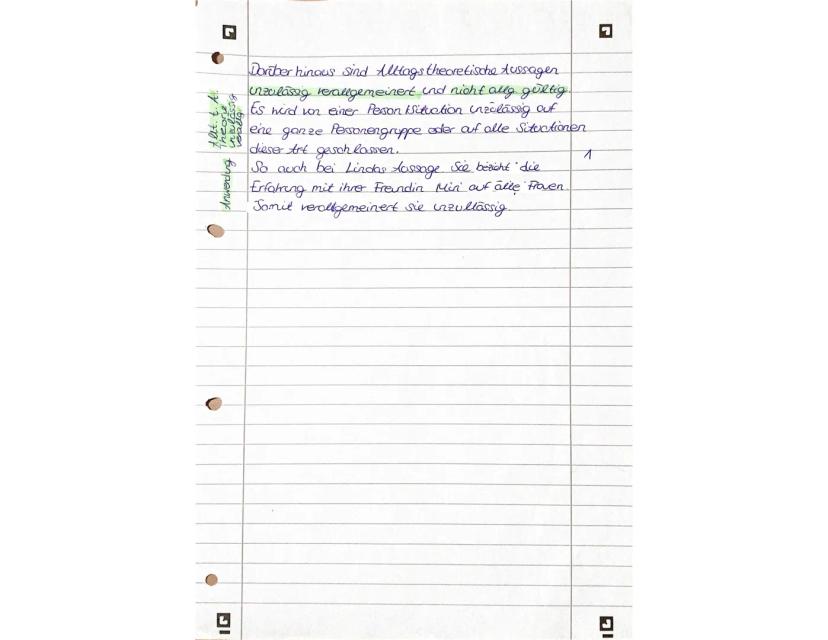 Darüber hinaus sind Alltagstheoretische Aussagen
unzulässig verallgemeinert und nicht allg. gültig.
Es wird von einer Person/Situation unzulässig auf
eine ganze Personengruppe oder auf alle Situationen
dieser Art geschlossen.
1
So auch bei Lindas Aussage. Sie bezieht die
Erfahrung mit ihrer Freundin Miri auf alle Frauen.
Somit verallgemeinert sie unzulässig.
Theorie
unzulässig
Anwendung